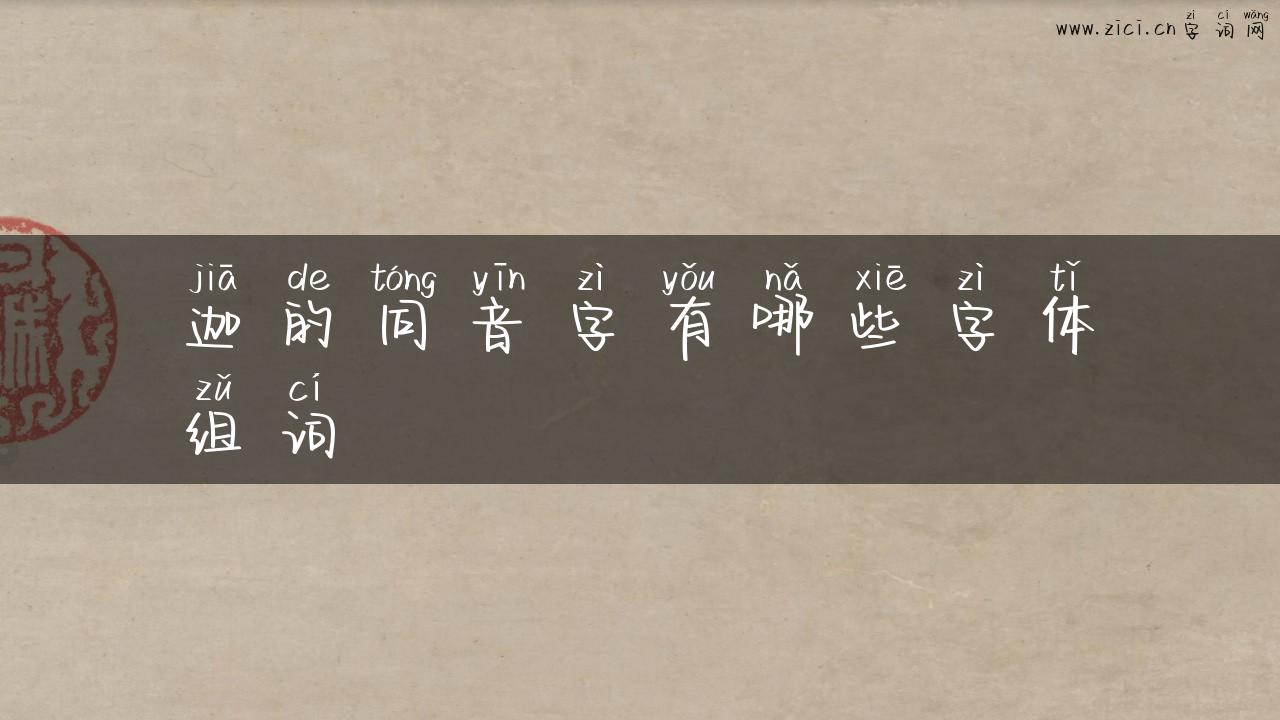 zì cí wǎng
www.zici.cn字词网
jiā de tóng yīn zì yǒu nǎ xiē zì tǐ
迦的同音字有哪些字体
zǔ cí
组词